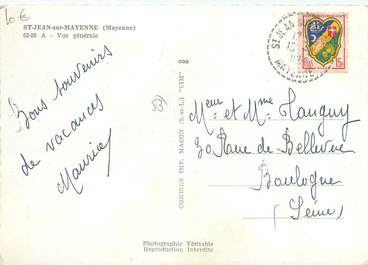 10 €
ST-JEAN-sur-MAYENNE (Mayenne)
62-28 A - Vue générale
Bons souvenirs
de vacances
Maurice
551
COMBIER IMP. MACON (S.-et-L.) "CIM"
ST JEAN
MAYENNE
15F
Meur et Mme Tanguy
30 Rue de Bellevue
Boulogne
(Seine)
Photographie Véritable
Reproduction Interdite